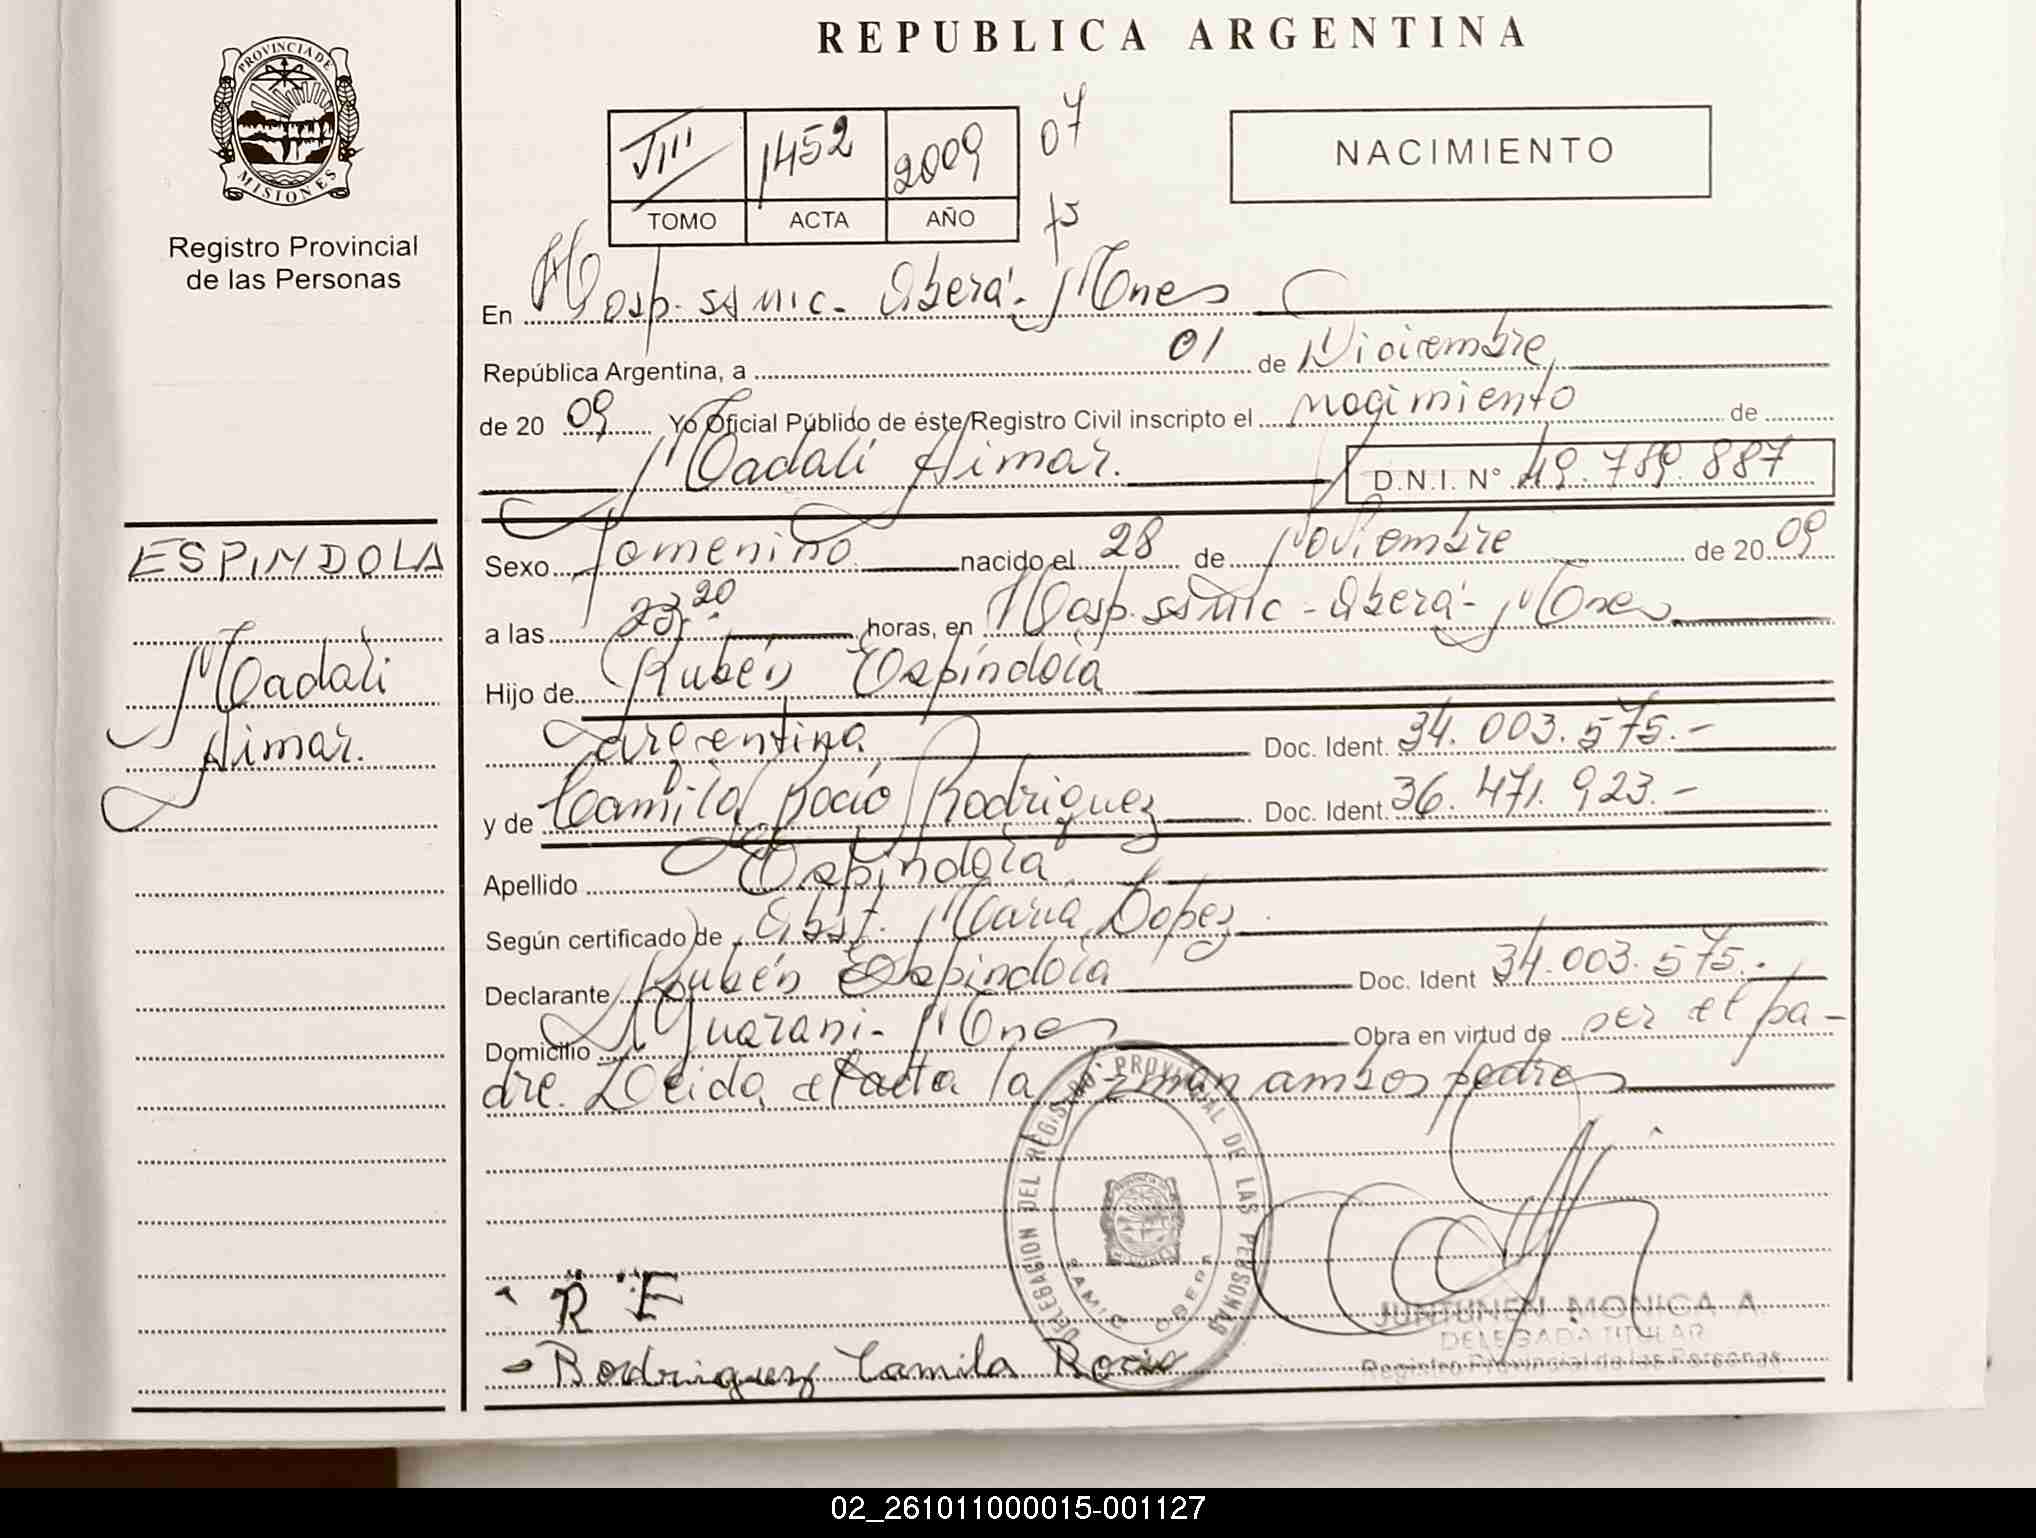 REPUBLICA ARGENTINA
PROVINCIA DE
MISIONES
Registro Provincial
de las Personas
VIII 1452 2009 07
TOMO ACTA AÑO
NACIMIENTO
En Hosp. SAMIC - Oberá - Mnes
República Argentina, a 01 de Diciembre
de 20 09 Yo Oficial Público de éste Registro Civil inscripto el nacimiento de
Madali Aimar. D.N.I. N° 49.789.887
ESPINDOLA
Madali
Aimar.
Sexo femenino nacido el 28 de Noviembre de 20 09
a las 23,20 horas, en Hosp. SAMIC - Oberá - Mnes
Hijo de Rubén Espíndola
argentina Doc. Ident. 34.003.575.-
y de Camila Rocío Rodriguez Doc. Ident. 36.471.923.-
Apellido Espíndola
Según certificado de Obst. María Lopez
Declarante Rubén Espíndola Doc. Ident 34.003.575.-
Domicilio Guaraní - Mnes Obra en virtud de ser el pa-
dre. Leida el acta la firman ambos padres
DELEGACION DEL REGISTRO PROVINCIAL DE LAS PERSONAS
SAMIC OBERA
R E
Rodriguez Camila Rocio
JUNTUNEN MONICA A
DELEGADA TITULAR
Registro Provincial de las Personas
02_261011000015-001127